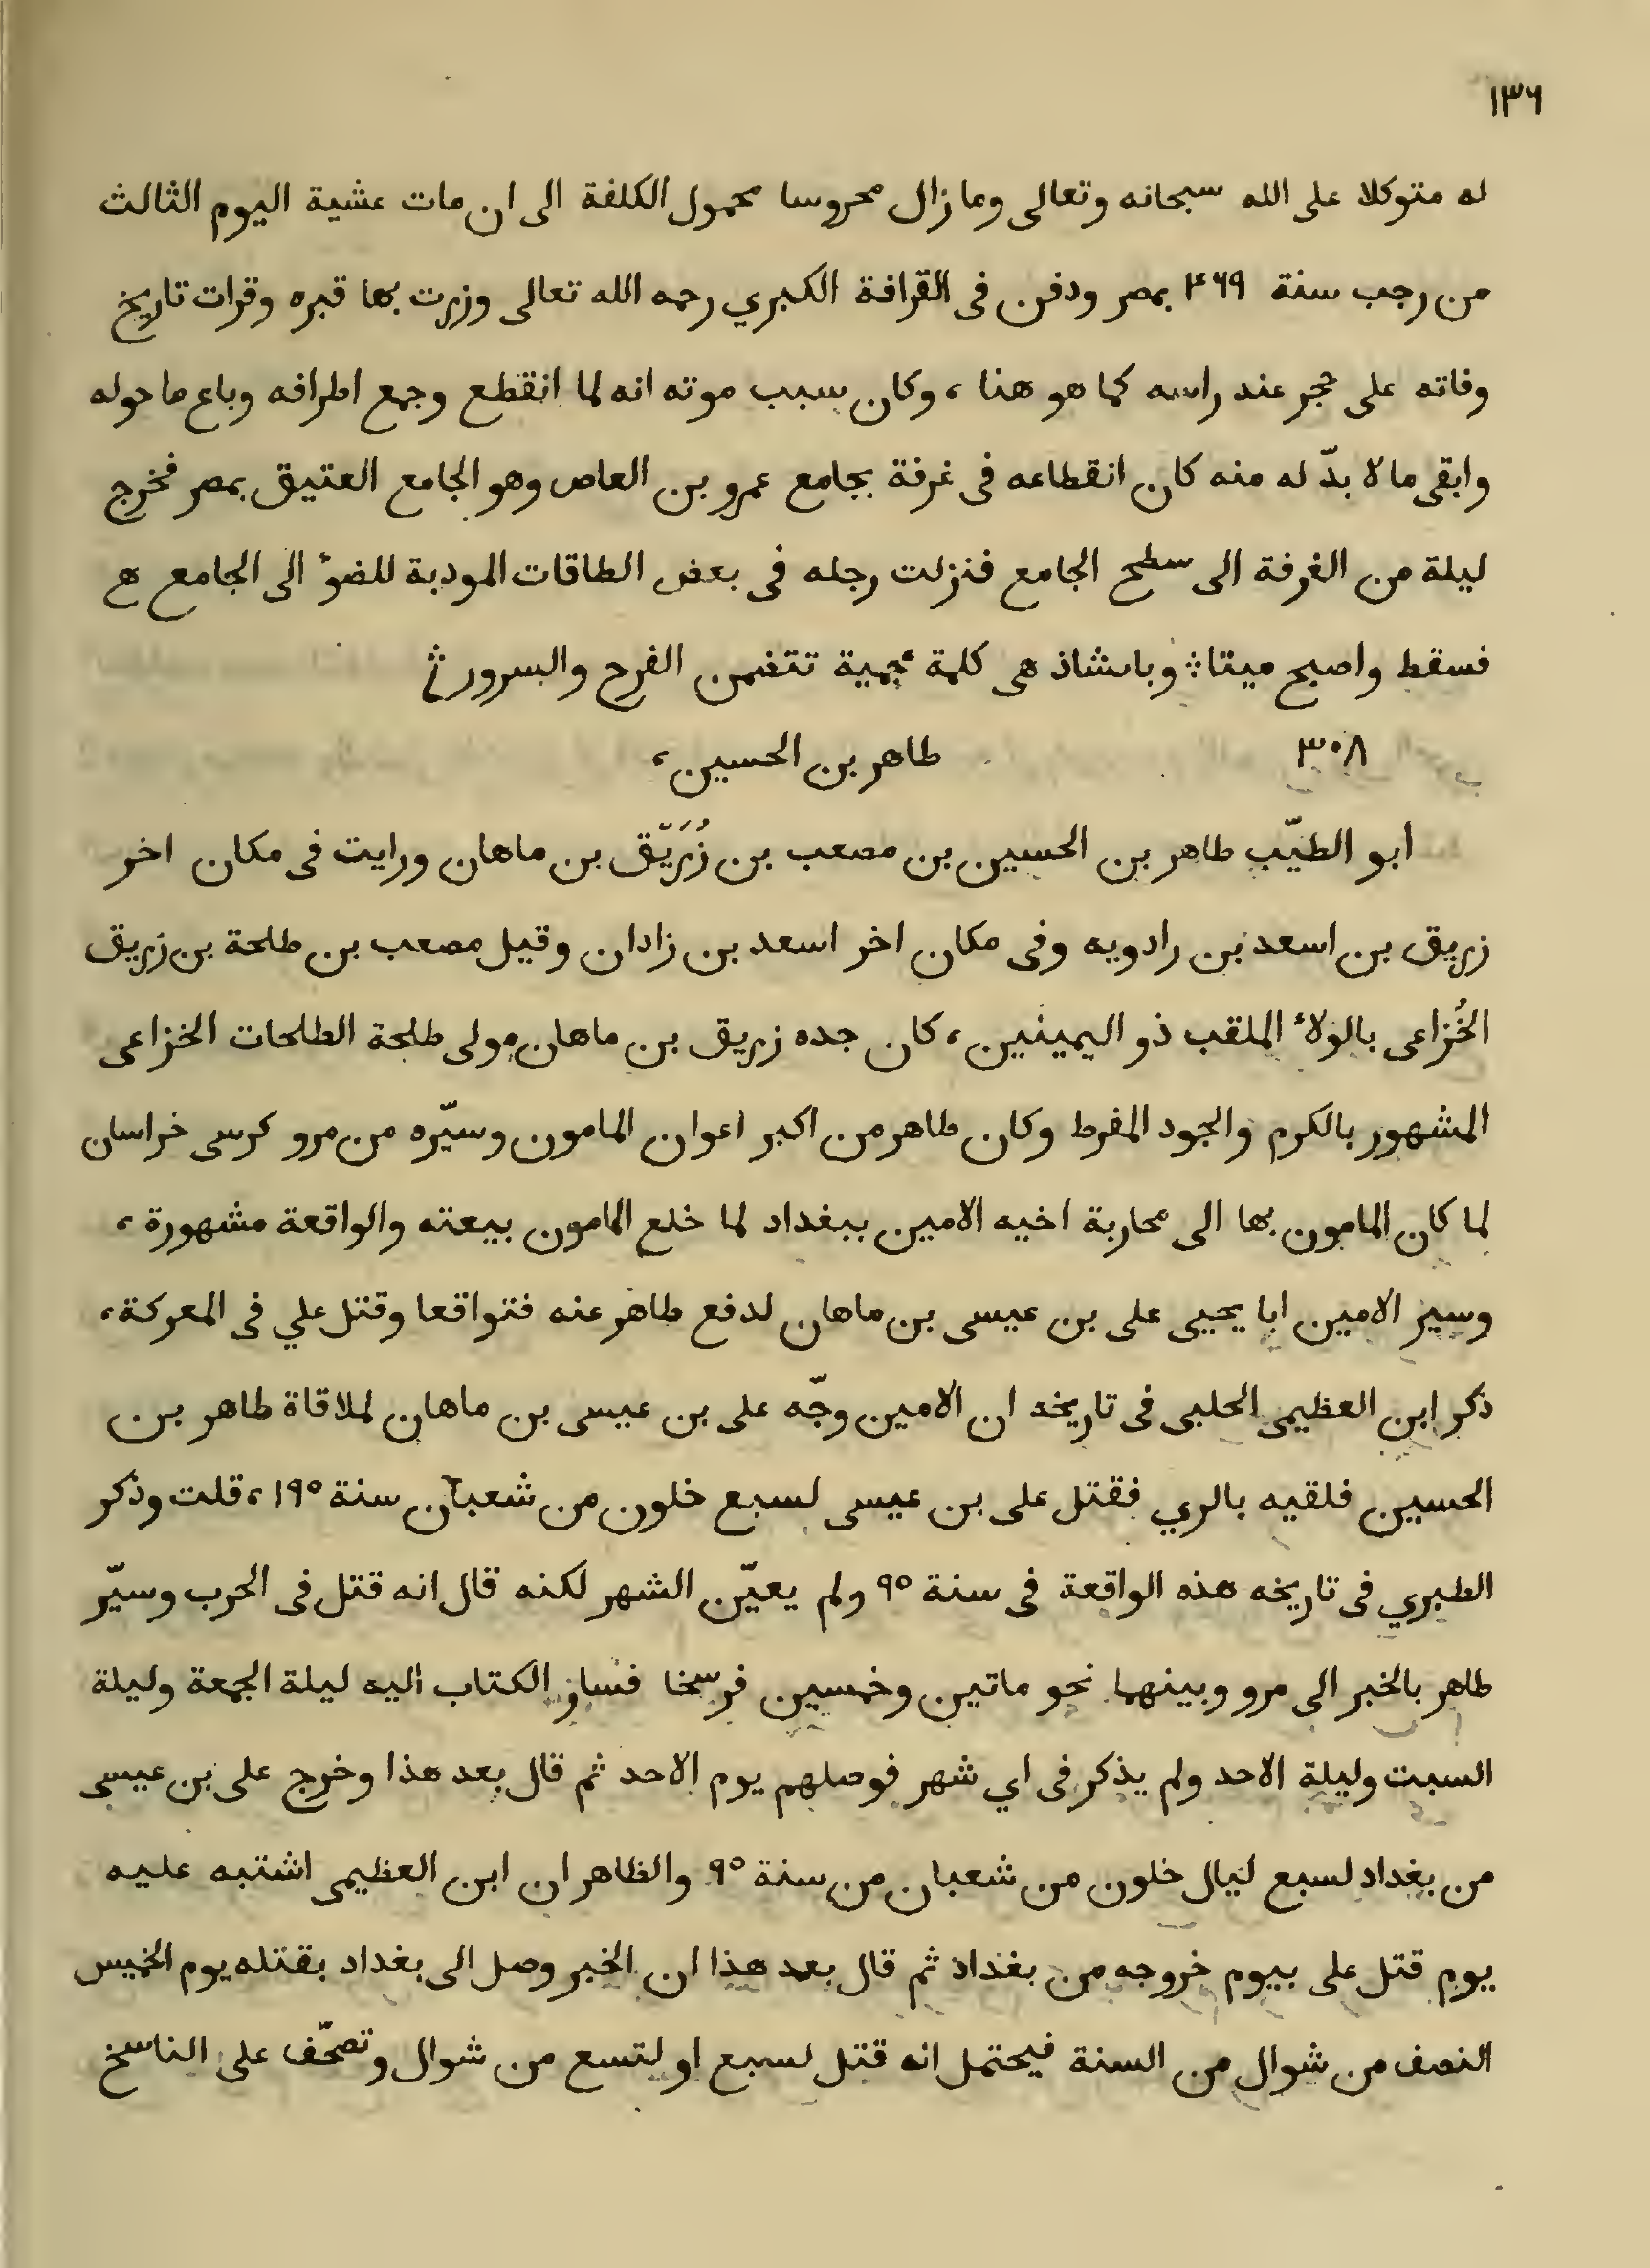 ١٣٦
له متوكلا على الله سبحانه وتعالى وما زال محروسا محمول الكلفة الى ان مات عشية اليوم الثالث
من رجب سنة ٤٦٩ بمصر ودفن فى القرافة الكبري رحمه الله تعالى وزرت بها قبره وقرات تاريخ
وفاته على حجر عند راسه كما هو هنا ، وكان سبب موته انه لما انقطع وجمع اطرافه وباع ما حوله
وابقى ما لا بدّ له منه كان انقطاعه فى غرفة بجامع عمرو بن العاص وهو الجامع العتيق بمصر فخرج
ليلة من الغرفة الى سطح الجامع فنزلت رجله فى بعض الطاقات المودبة للضوء الى الجامع هع
فسقط واصبح ميتا ؞ وبابشاذ هى كلمة عجمية تتضمن الفرح والسرور ؞
٣٠٨ طاهر بن الحسين ،
ابو الطيّب طاهر بن الحسين بن مصعب بن زُرَيّق بن ماهان ورايت فى مكان اخر
زريق بن اسعد بن رادويه وفى مكان اخر اسعد بن زادان وقيل مصعب بن طلحة بن زريق
الخُزاعى بالولاء الملقب ذو اليمينين ، كان جده زريق بن ماهان مولى طلحة الطلحات الخزاعى
المشهور بالكرم والجود المفرط وكان طاهر من اكبر اعوان المامون وسيّره من مرو كرسى خراسان
لما كان المامون بها الى محاربة اخيه الامين ببغداد لما خلع المامون بيعته والواقعة مشهورة ،
وسير الامين ابا يحيى على بن عيسى بن ماهان لدفع طاهر عنه فتواقعا وقتل علي فى المعركة ،
ذكر ابن العظيمى الحلبى فى تاريخه ان الامين وجّه على بن عيسى بن ماهان لملاقاة طاهر بن
الحسين فلقيه بالري فقتل على بن عيسى لسبع خلون من شعبان سنة ١٩٥ ، قلت وذكر
الطبري فى تاريخه هذه الواقعة فى سنة ٩٥ ولم يعيّن الشهر لكنه قال انه قتل فى الحرب وسيّر
طاهر بالخبر الى مرو وبينهما نحو ماتين وخمسين فرسخا فسار الكتاب اليه ليلة الجمعة وليلة
السبت وليلة الاحد ولم يذكر فى اي شهر فوصلهم يوم الاحد ثم قال بعد هذا وخرج على بن عيسى
من بغداد لسبع ليال خلون من شعبان من سنة ٩٥ والظاهر ان ابن العظيمى اشتبه عليه
يوم قتل على بيوم خروجه من بغداد ثم قال بعد هذا ان الخبر وصل الى بغداد بقتله يوم الخميس
النصف من شوال من السنة فيحتمل انه قتل لسبع او لتسع من شوال وتصحّف على الناسخ